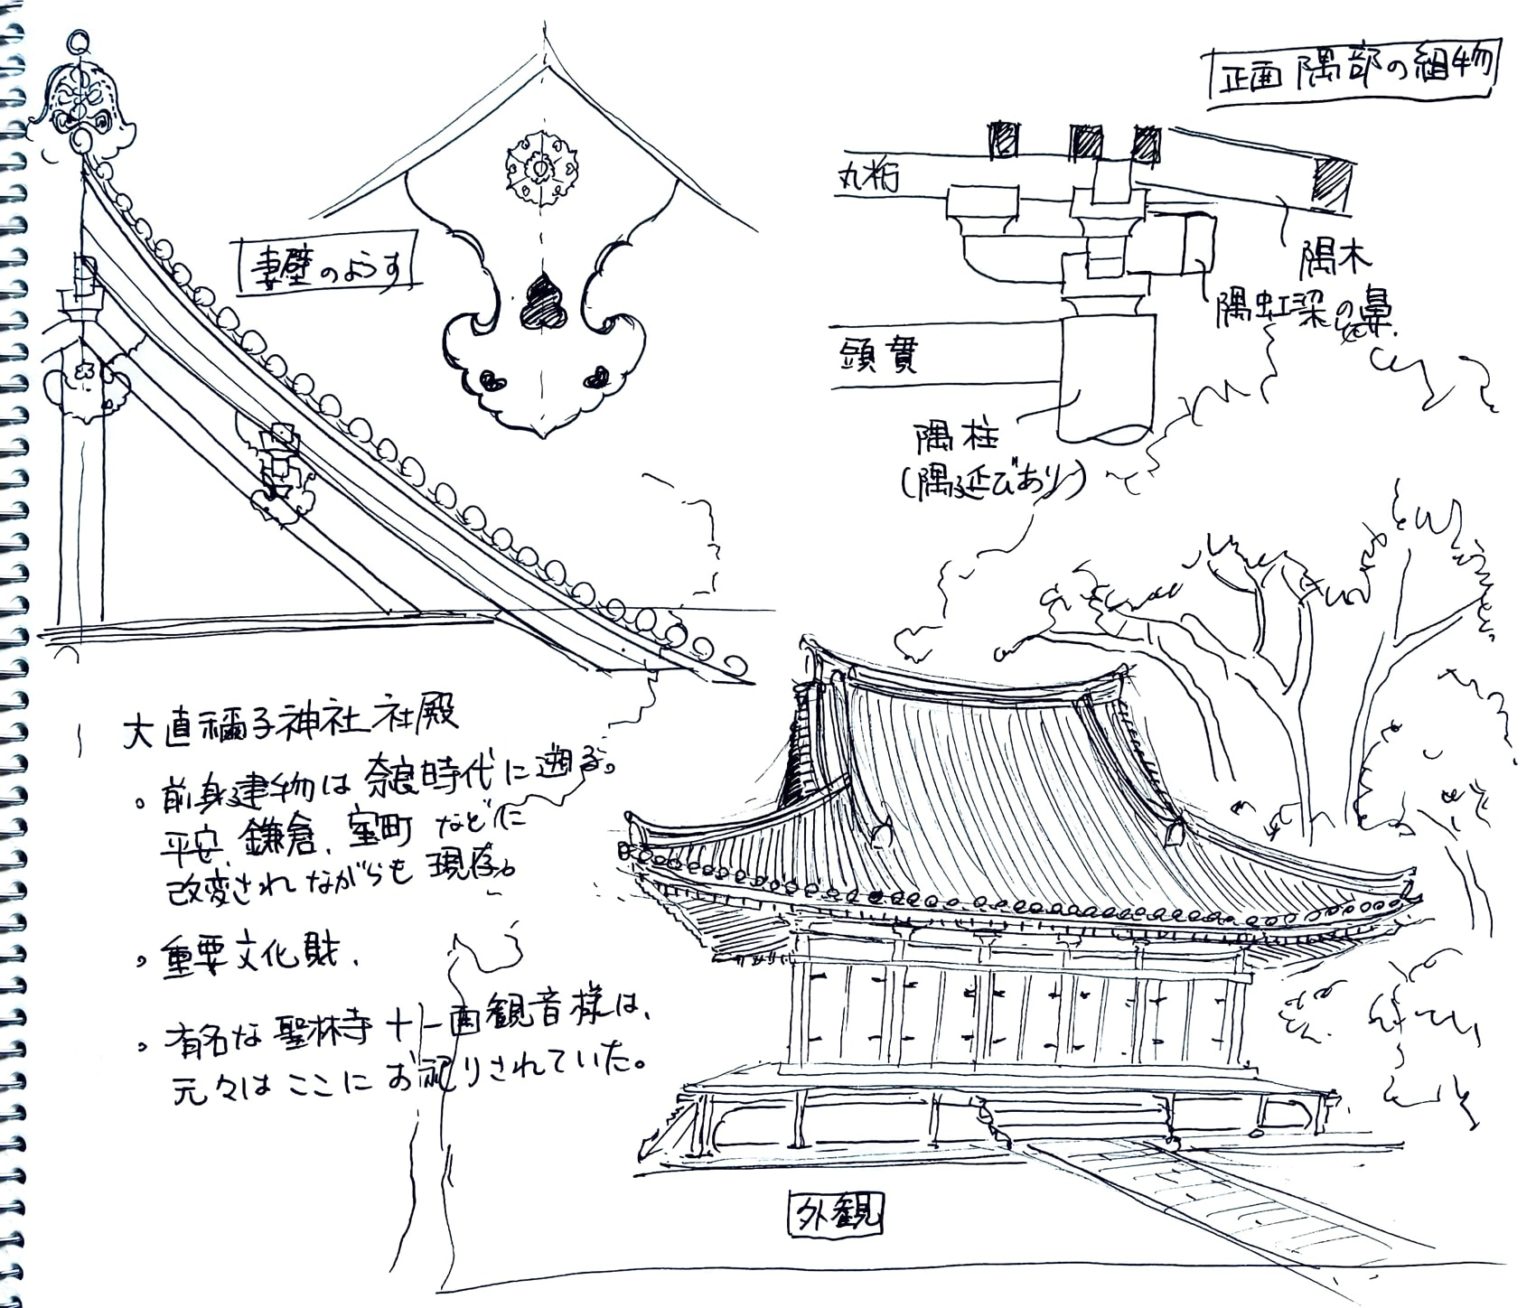 正面 隅部の組物
丸桁
隅木
隅虹梁の鼻
頭貫
隅柱
(隅延びあり)
妻壁のようす
大直禰子神社社殿
。前身建物は奈良時代に遡る。
平安、鎌倉、室町などに
改変されながらも現存。
。重要文化財、
。有名な聖林寺十一面観音様は、
元々はここにお祀りされていた。
外観